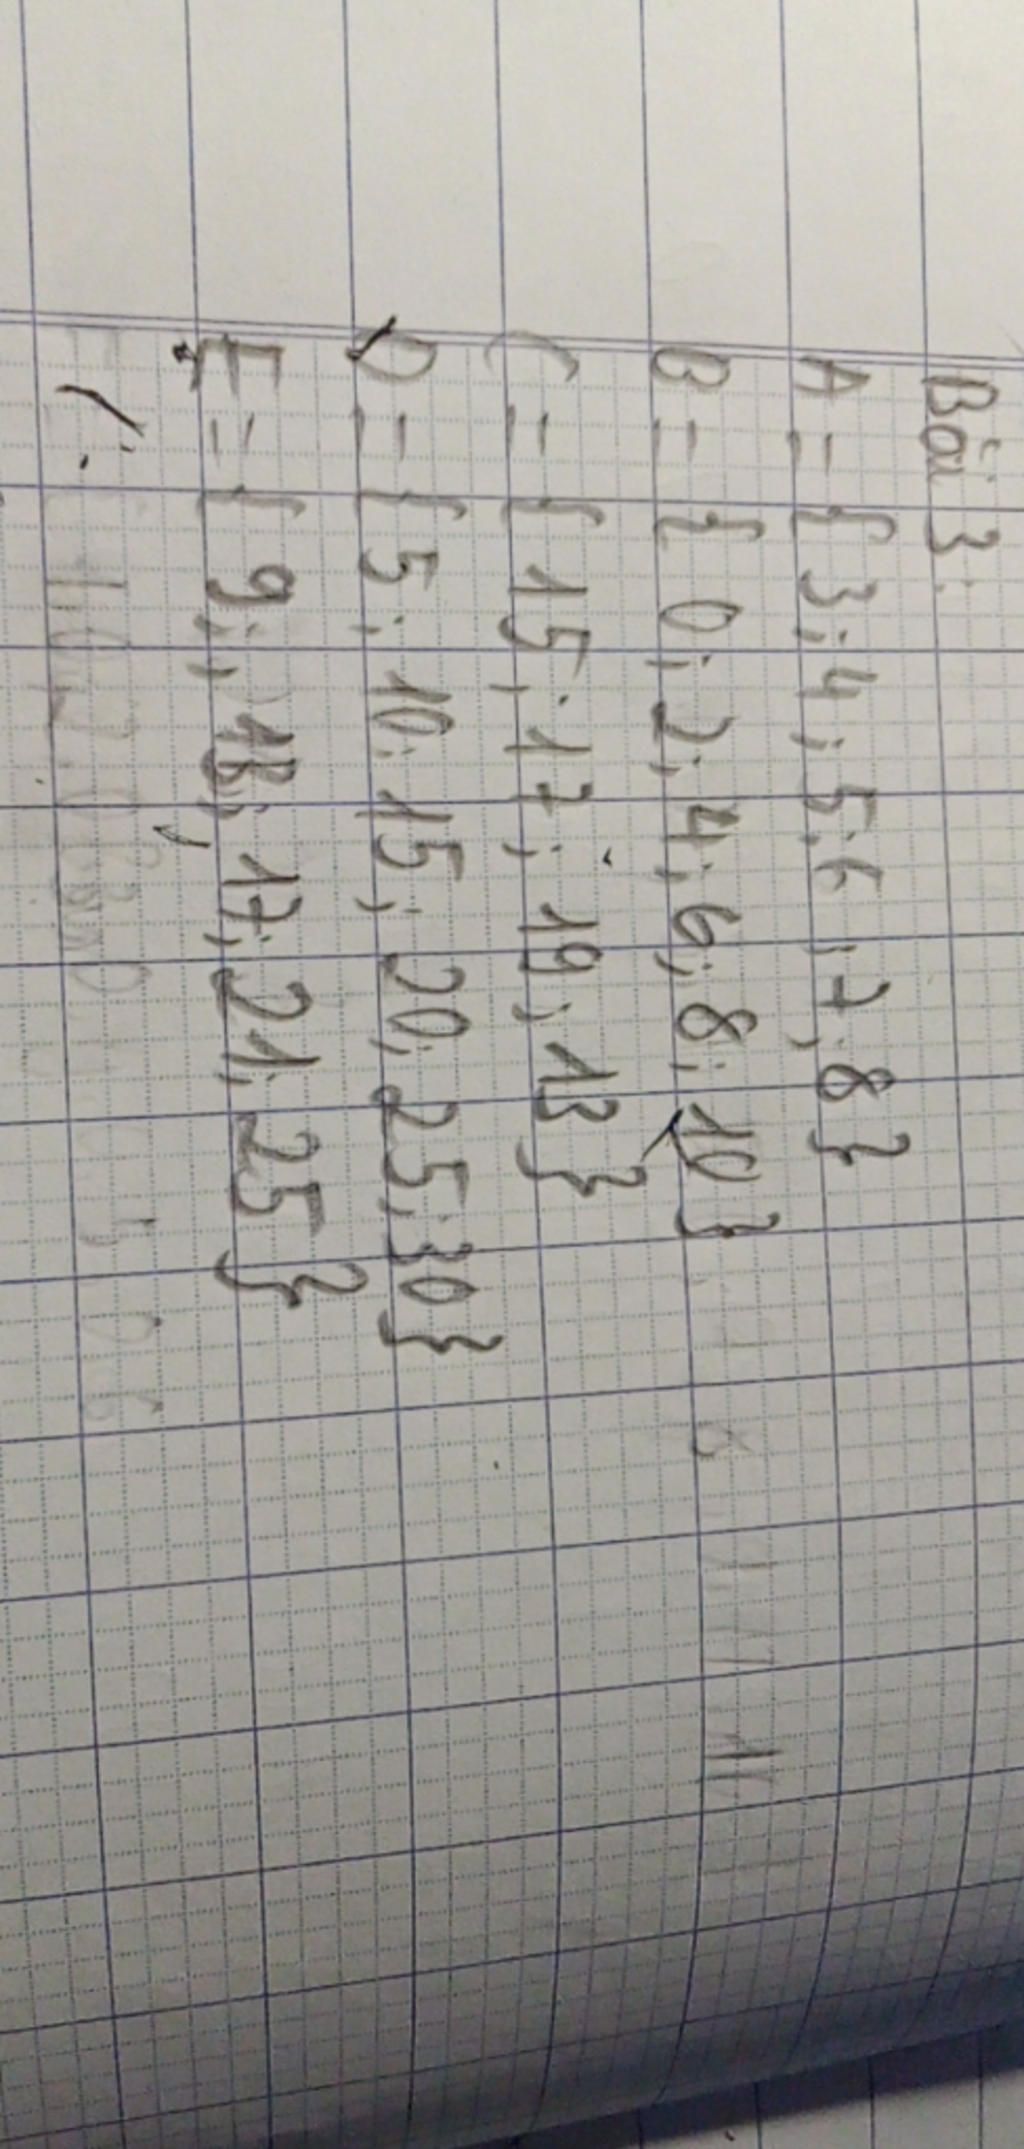 Bài 3:
A = { 3; 4; 5; 6; 7; 8 }
B = { 0; 2; 4; 6; 8; 10 }
C = { 15; 17; 19; 13 }
D = { 5; 10; 15; 20; 25; 30 }
E = { 9; 13; 17; 21; 25 }